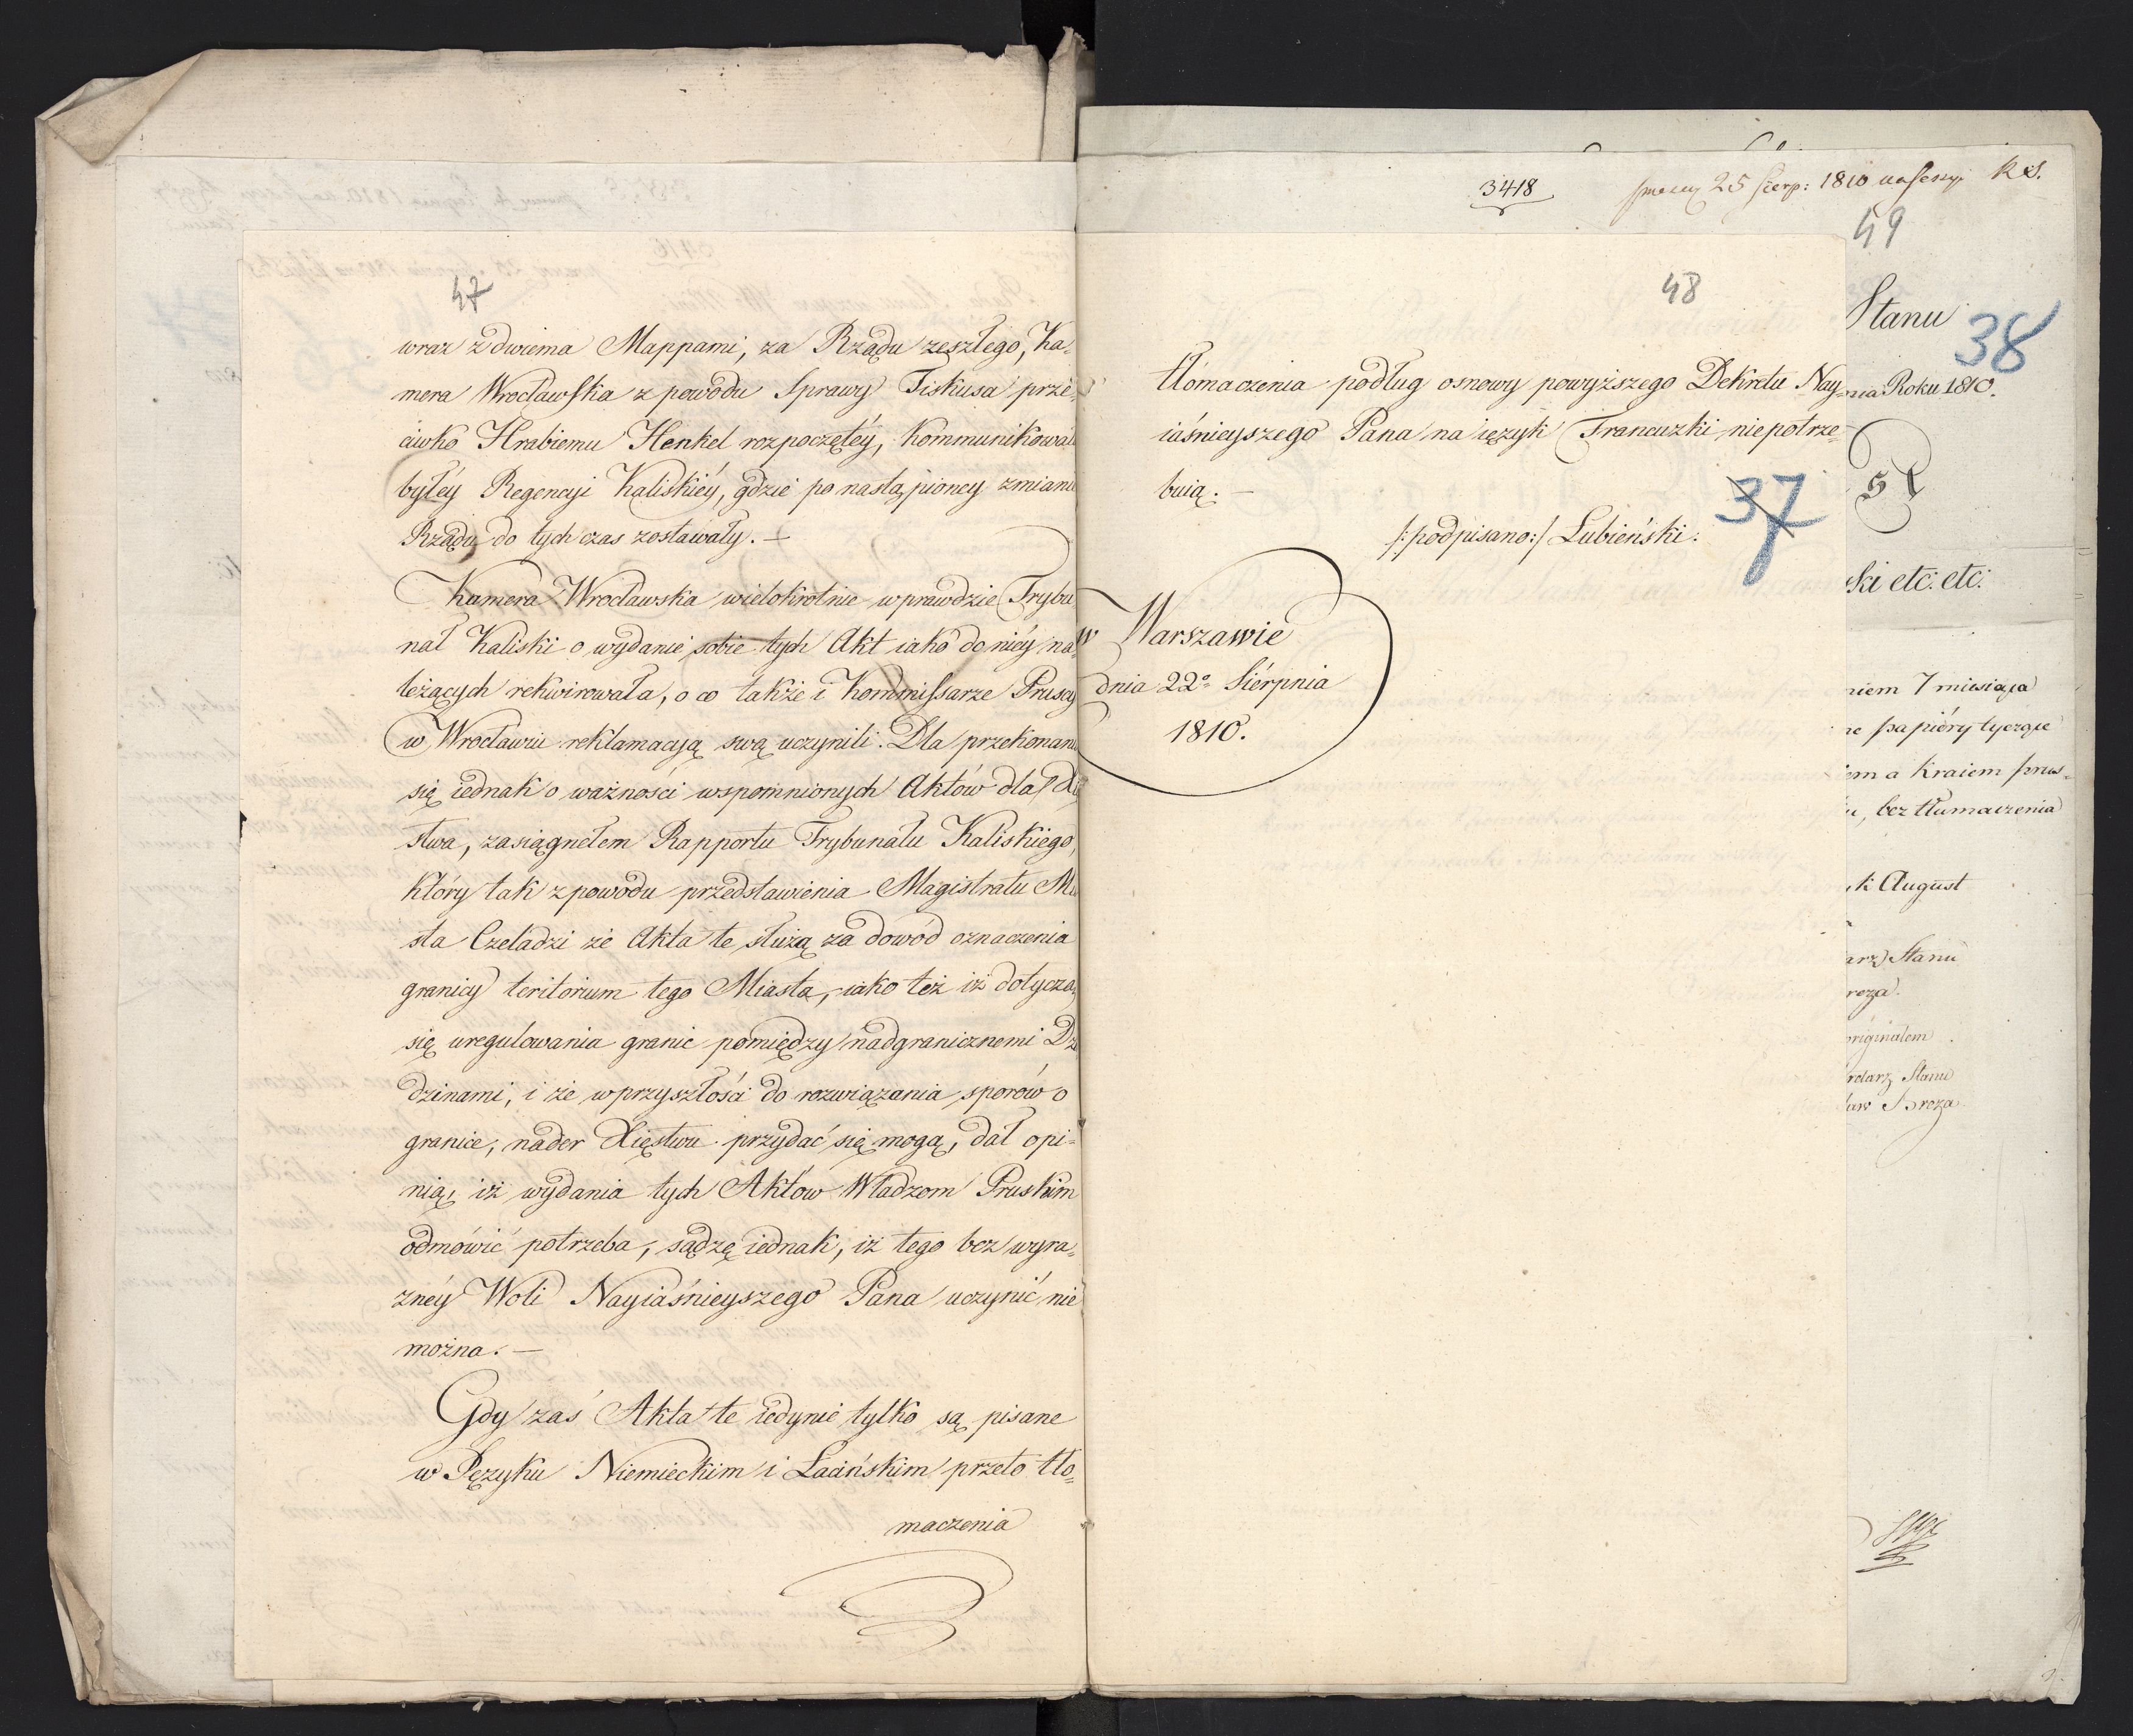 47
wraz z dwiema Mappami, za Rządu zeszłego, Ka„
mera Wrocławska z powodu Sprawy Fiskusa prze„
ciwko Hrabiemu Henkel rozpoczętéy, kommunikowała
byłéy Regencyi Kaliskiéy, gdzie po nastąpioney zmianie
Rządu do tych czas zostawały. —
Kamera Wrocławska wielokrotnie wprawdzie Trybu
nał Kaliski o wydanie sobie tych Akt iako do niéy na„
leżących rekwirowała, o co także i Kommissarze Pruscy
w Wrocławiu reklamacyją swą uczynili. Dla przekonania
się iednak o ważności wspomnionych Aktów dla Xię
stwa, zasiągnełem Rapportu Trybunału Kaliskiego,
który tak z powodu przedstawienia Magistratu Mia
sta Czeladzi że Akta te służą za dowód oznaczenia
granicy teritorium tego Miasta, iako też iż dotyczą
się uregulowania granic pomiędzy nadgranicznemi Dzie
dzinami, i że wprzyszłości do rozwiązania sporów o
granice, nader Xięstwu przydać się mogą, dał opi=
nią, iż wydania tych Aktów Władzom Pruskim
odmówić potrzeba, sądzę iednak, iż tego bez wyra„
znéy Woli Nayiaśnieyszego Pana uczynić nie
można. —
Gdy zaś Akta te iedynie tylko są pisane
w Ięzyku Niemieckim i Łacińskim przeto tło„
maczenia
48
tłómaczenia podług osnowy powyższego Dekretu Nay„
iaśnieyszego Pana na ięzyk Francuzki niepotrze„
buią. —
37
/:podpisano:/ Lubieński.
w Warszawie
dnia 22º Sierpnia
1810.
3418
25 Sierp: 1810 na Sessyi R.S.
49
Stanu
38
nia Roku 1810.
ski etc: etc:
niem 7 miesiąca
ne papióry tyczące
iem a kraiem prus„
u, bez tłumaczenia
k August
arz Stanu
reza.
originałem
retarz Stanu
ław Breza